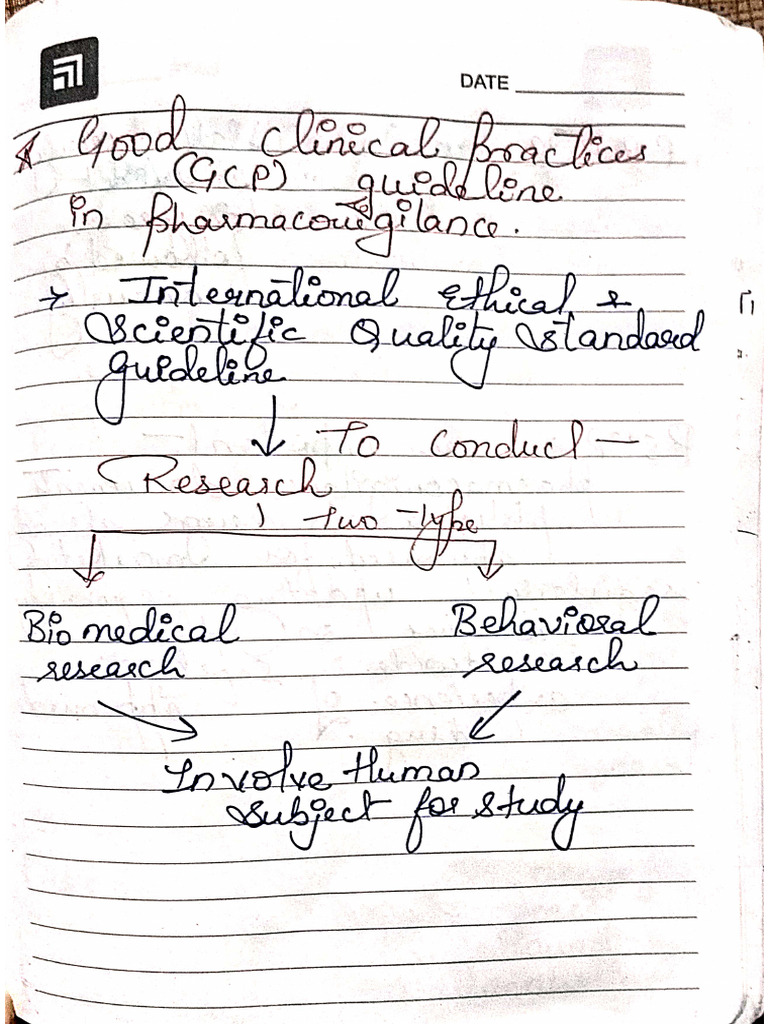 DATE
* Good Clinical Practices
(GCP) guideline
in Pharmacovigilance.
→ International Ethical &
Scientific Quality Standard
guideline
↓ To conduct —
Research
two type
Biomedical
research
Behavioral
research
Involve Human
subject for study